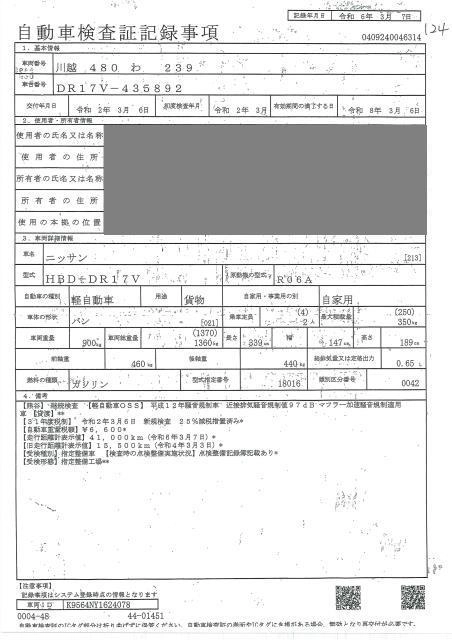 記録年月日 令和 6年 3月 7日
124
自動車検査証記録事項
0409240046314
1. 基本情報
車両番号 川越 480 わ 239
車台番号 DR17V-435892
交付年月日 令和 2年 3月 6日 初度検査年月 令和 2年 3月 有効期間の満了する日 令和 8年 3月 6日
2. 使用者・所有者情報
使用者の氏名又は名称
使用者の住所
所有者の氏名又は名称
所有者の住所
使用の本拠の位置
3. 車両詳細情報
車名 ニッサン [213]
型式 HBD-DR17V 原動機の型式 R06A
自動車の種別 軽自動車 用途 貨物 自家用・事業用の別 自家用
車体の形状 バン [021] 乗車定員 (4) 2人 最大積載量 (250) 350kg
車両重量 900kg 車両総重量 (1370) 1360kg 長さ 339cm 幅 147cm 高さ 189cm
前軸重 460kg 後軸重 440kg 総排気量又は定格出力 0.65 L
燃料の種類 ガソリン 型式指定番号 18016 類別区分番号 0042
4. 備考
【熊谷】 継続検査 【軽自動車OSS】 平成12年騒音規制車 近接排気騒音規制値97dB マフラー加速騒音規制適用
車 【貸渡】**
【31年度税制】 令和2年3月6日 新規検査 25%減税措置済み*
【自動車重量税額】 ¥6,600*
【走行距離計表示値】 41,000km (令和6年3月7日)*
【旧走行距離計表示値】 15,500km (令和4年3月3日)*
【受検種別】 指定整備車 【検査時の点検整備実施状況】 点検整備記録簿記載あり*
【受検形態】 指定整備工場**
【注意事項】
記録事項はシステム登録時点の情報となります
車両ID K9564NY1624078
0004-48 44-01451